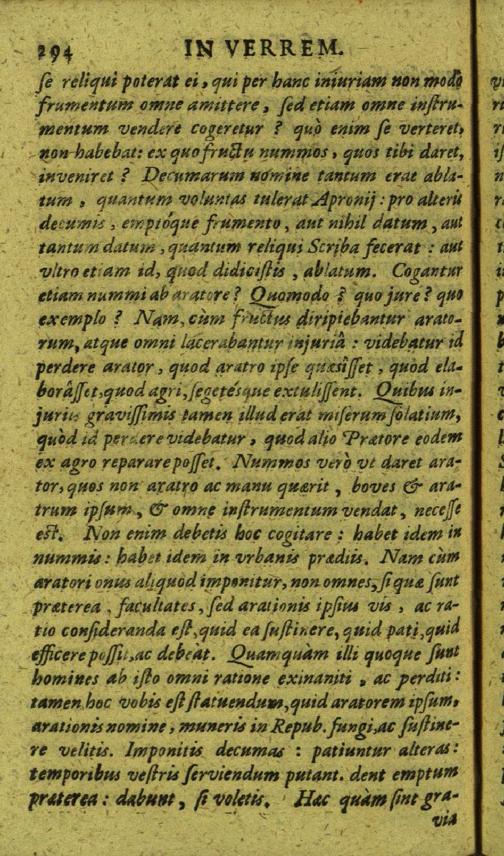 294 IN VERREM.
se reliqui poterat ei, qui per hanc iniuriam non modò
frumentum omne amittere, sed etiam omne instru-
mentum vendere cogeretur? quò enim se verteret,
non habebat: ex quo fructu nummos, quos tibi daret,
inveniret? Decumarum nomine tantum erat abla-
tum, quantum voluntas tulerat Apronij: pro alteris
decumis, emptóque frumento, aut nihil datum, aut
tantum datum, quantum reliqui Scriba fecerat: aut
vltro etiam id, quod didicistis, ablatum. Cogantur
etiam nummi ab aratore? Quomodo? quo jure? quo
exemplo? Nam, cùm fructus diripiebantur arato-
rum, atque omni lacerabantur injuriâ: videbatur id
perdere arator, quod aratro ipse quæsîsset, quod ela-
borâsset, quod agri, segetésque extulissent. Quibus in-
juriis gravissimis tamen illud erat miserum solatium,
quòd id perdere videbatur, quod alio Prætore eodem
ex agro reparare posset. Nummos verò vt daret ara-
tor, quos non aratro ac manu quærit, boves & ara-
trum ipsum, & omne instrumentum vendat, necesse
est. Non enim debetis hoc cogitare: habet idem in
nummis: habet idem in vrbanis prædiis. Nam cùm
aratori onus aliquòd imponitur, non omnes, si quæ sunt
præterea, facultates, sed arationis ipsius vis, ac ra-
tio consideranda est, quid ea sustinere, quid pati, quid
efficere possit, ac debeat. Quamquam illi quoque sunt
homines ab isto omni ratione exinaniti, ac perditi:
tamen hoc vobis est statuendum, quid aratorem ipsum,
arationis nomine, muneris in Repub. fungi, ac sustine-
re velitis. Imponitis decumas: patiuntur alteras:
temporibus vestris serviendum putant. dent emptum
præterea: dabunt, si voletis. Hæc quàm sint gra-
via